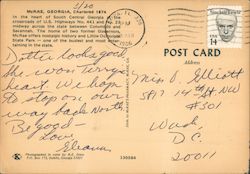 McRAE, GEORGIA, Chartered 1874
In the heart of South Central Georgia at the
crossroads of U.S. Highways No. 441 and 341
midway across the state between Columbus and
Savannah. The home of two former Governors,
McRae offers nostalgic history and Little Ocmulgee
State Park — one of the busiest and most enter-
taining in the state.
3/20
Dottie looks good,
she won Terry's
heart. We hope
to stop on our
way back North.
Be good
Love,
Eleanor
1986
USA
14
POST CARD
Address
Miss D. Elliott
5817 14th St NW
#301
Wash
D.C.
20011
P.O. Box 772, Dublin, Georgia 31021
130584